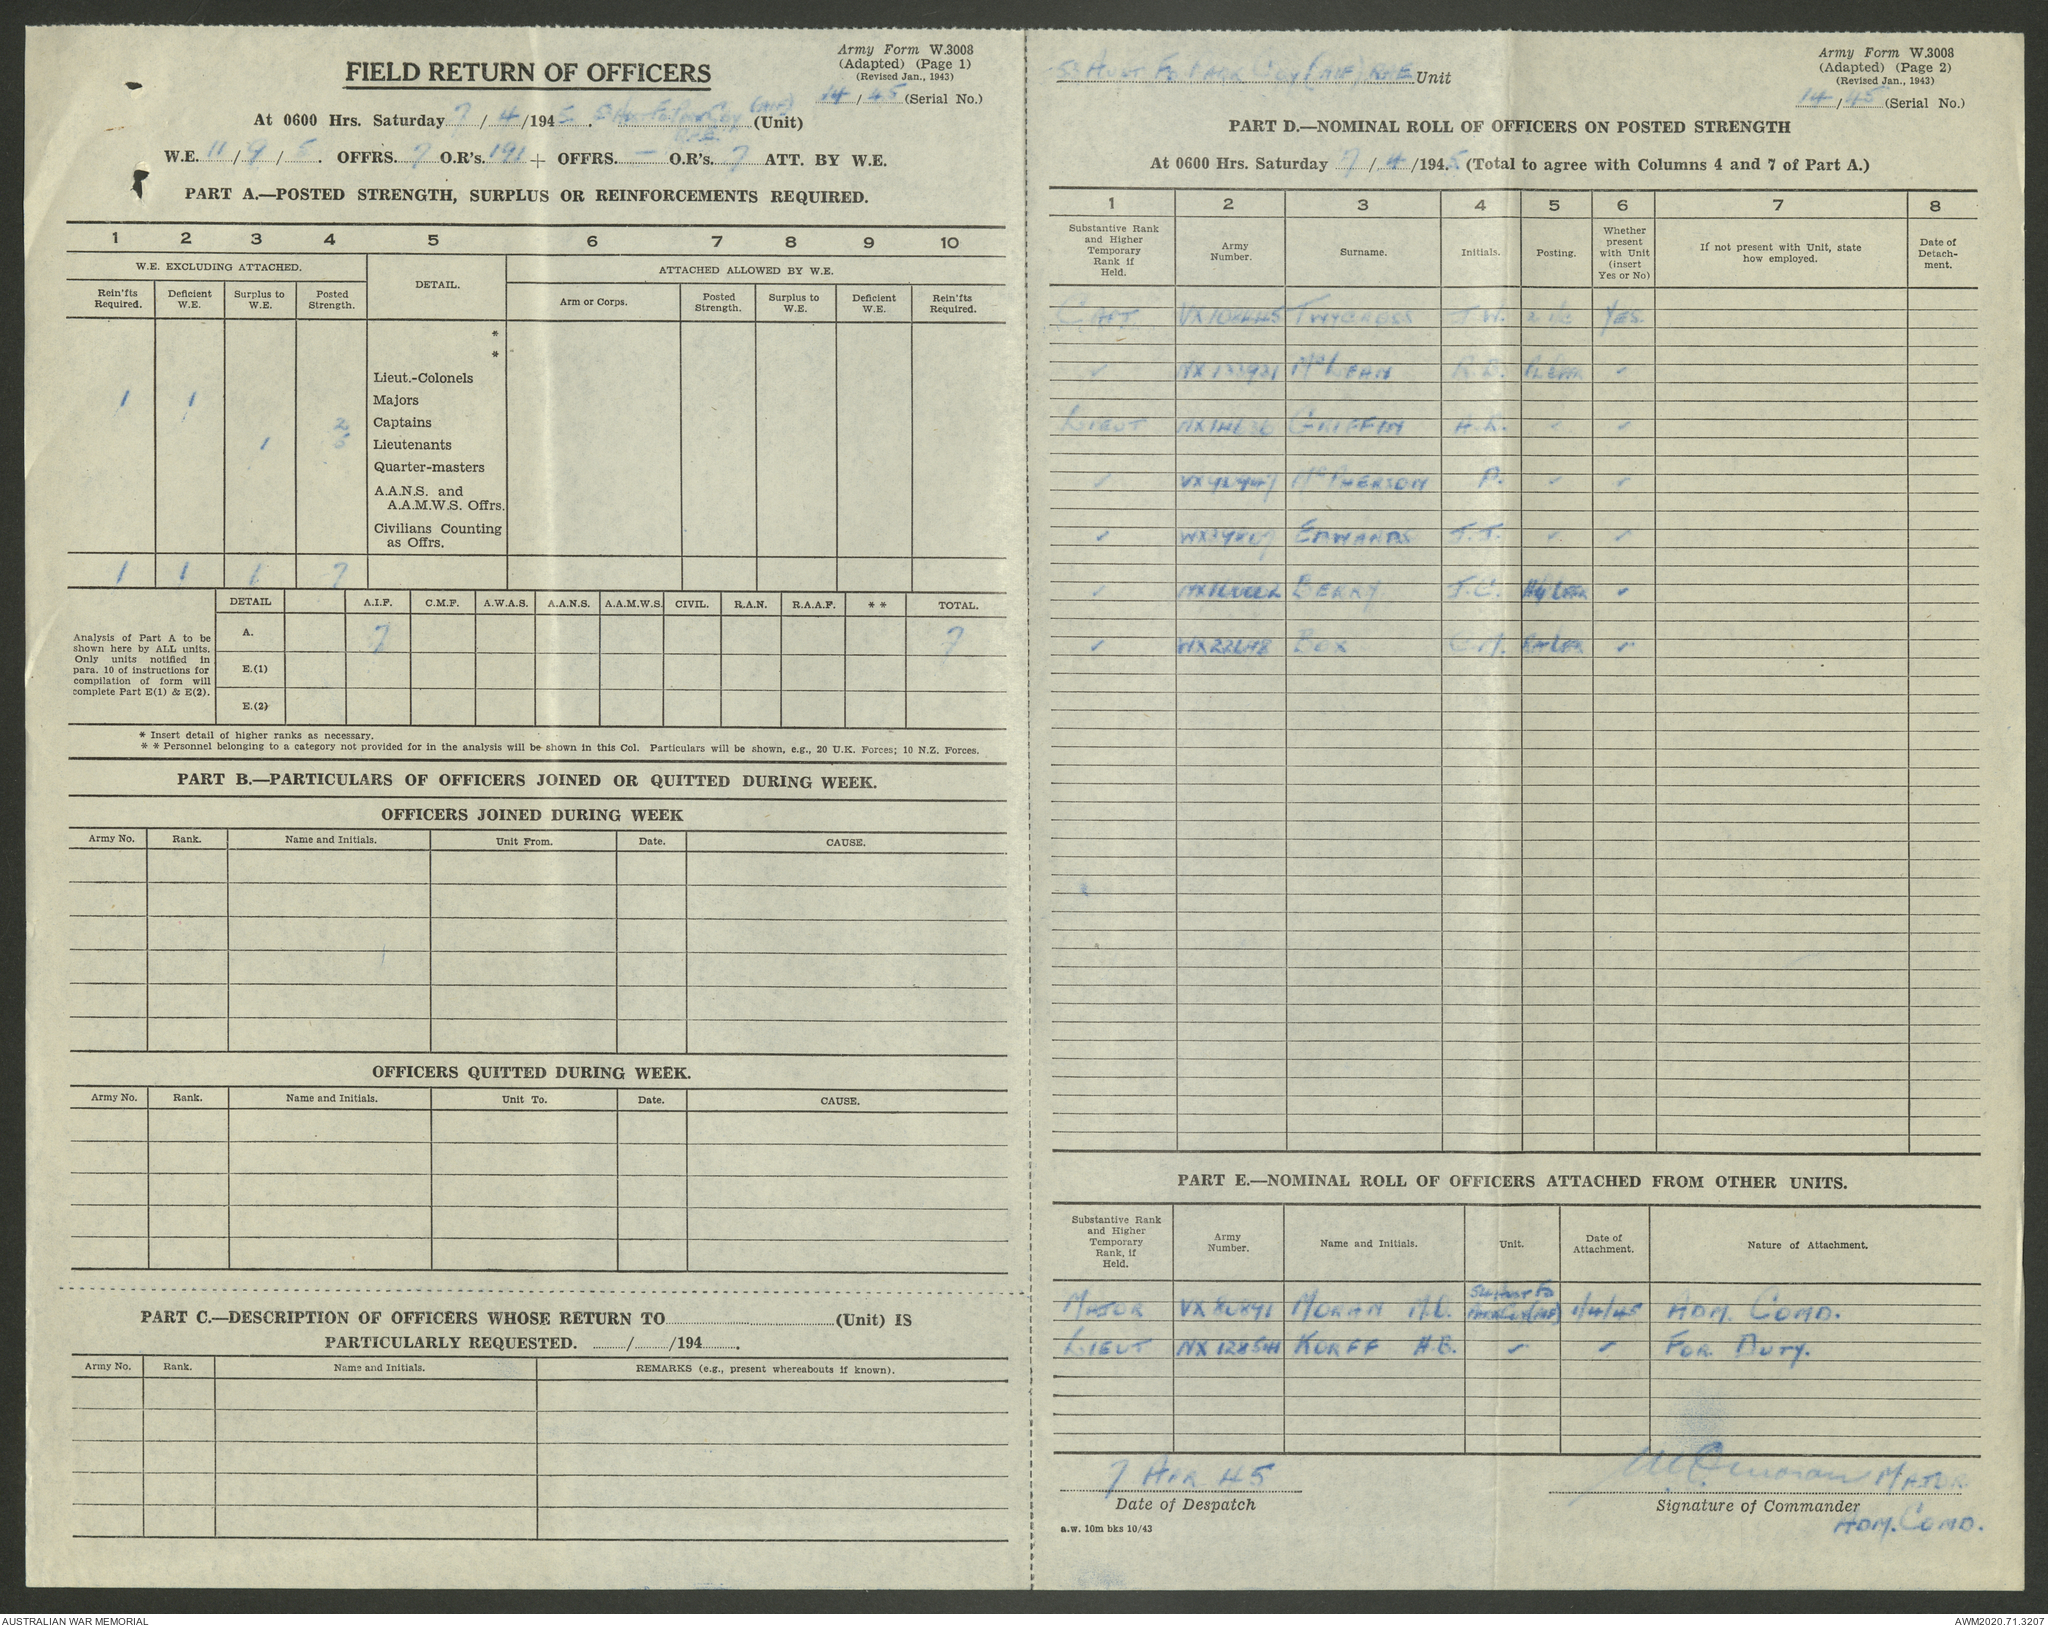 Army Form W.3008
(Adapted) (Page 1)
(Revised Jan., 1943)
FIELD RETURN OF OFFICERS
14/45 (Serial No.)
At 0600 Hrs. Saturday 7/4/1945. (AIF) (Unit)
W.E. 11/9/5. OFFRS. 7 O.R's. 191 + OFFRS. — O.R's. 7 ATT. BY W.E.
PART A.—POSTED STRENGTH, SURPLUS OR REINFORCEMENTS REQUIRED.
1 2 3 4 5 6 7 8 9 10
W.E. EXCLUDING ATTACHED. DETAIL. ATTACHED ALLOWED BY W.E.
Rein'fts Required. Deficient W.E. Surplus to W.E. Posted Strength. Arm or Corps. Posted Strength. Surplus to W.E. Deficient W.E. Rein'fts Required.
*
*
Lieut.-Colonels
1 1 Majors
2 Captains
1 5 Lieutenants
Quarter-masters
A.A.N.S. and
A.A.M.W.S. Offrs.
Civilians Counting
as Offrs.
1 1 1 7
DETAIL A.I.F. C.M.F. A.W.A.S. A.A.N.S. A.A.M.W.S. CIVIL. R.A.N. R.A.A.F. * * TOTAL.
Analysis of Part A to be
shown here by ALL units.
Only units notified in
para. 10 of instructions for
compilation of form will
complete Part E(1) & E(2).
A. 7 7
E.(1)
E.(2)
* Insert detail of higher ranks as necessary.
* * Personnel belonging to a category not provided for in the analysis will be shown in this Col. Particulars will be shown, e.g., 20 U.K. Forces; 10 N.Z. Forces.
PART B.—PARTICULARS OF OFFICERS JOINED OR QUITTED DURING WEEK.
OFFICERS JOINED DURING WEEK
Army No. Rank. Name and Initials. Unit From. Date. CAUSE.
OFFICERS QUITTED DURING WEEK.
Army No. Rank. Name and Initials. Unit To. Date. CAUSE.
PART C.—DESCRIPTION OF OFFICERS WHOSE RETURN TO (Unit) IS
PARTICULARLY REQUESTED. / /194 .
Army No. Rank. Name and Initials. REMARKS (e.g., present whereabouts if known).
Army Form W.3008
(Adapted) (Page 2)
(Revised Jan., 1943)
Aust Fd Park Coy (AIF) RAE Unit
14/45 (Serial No.)
PART D.—NOMINAL ROLL OF OFFICERS ON POSTED STRENGTH
At 0600 Hrs. Saturday 7/4/1945 (Total to agree with Columns 4 and 7 of Part A.)
1 2 3 4 5 6 7 8
Substantive Rank and Higher Temporary Rank if Held. Army Number. Surname. Initials. Posting. Whether present with Unit (insert Yes or No) If not present with Unit, state how employed. Date of Detachment.
CAPT TWYCROSS J.W. 2 i/c YES.
✓ McLEAN R.D. ✓
LIEUT GRIFFIN A.R. ✓ ✓
✓ McPHERSON P. ✓ ✓
✓ EDWARDS J.J. ✓ ✓
✓ BERRY J.C. ✓
✓ BOX ✓
PART E.—NOMINAL ROLL OF OFFICERS ATTACHED FROM OTHER UNITS.
Substantive Rank and Higher Temporary Rank, if Held. Army Number. Name and Initials. Unit. Date of Attachment. Nature of Attachment.
MAJOR VX80891 MORAN M.O. 1/4/45 ADM. COMD.
LIEUT NX12854 KORFF H.B. ✓ ✓ FOR DUTY.
7 APR 45 MAJOR
Date of Despatch Signature of Commander
ADM. COMD.
a.w. 10m bks 10/43
AUSTRALIAN WAR MEMORIAL AWM2020.71.3207